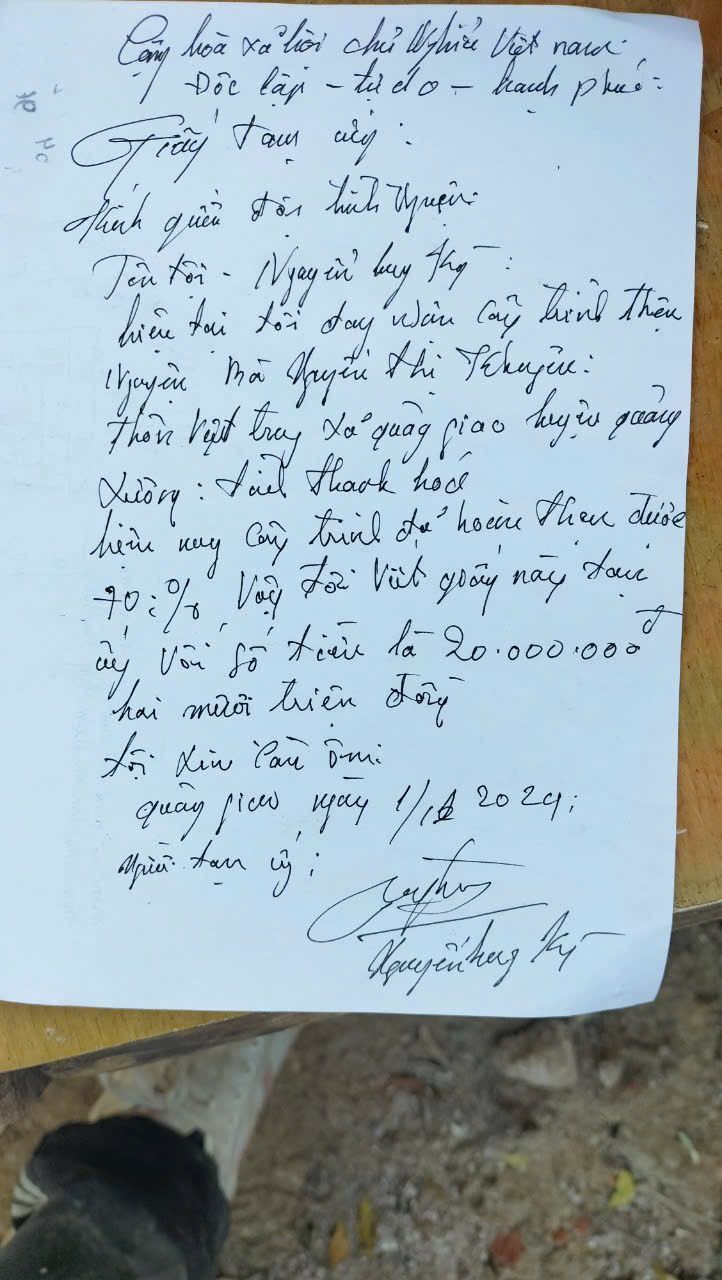 Cộng hòa xã hội chủ nghĩa Việt nam
Độc lập - tự do - hạnh phúc
Giấy tạm ứng:
Kính quền đội tình nguyện:
Tên tôi - Nguyễn huy Kỳ:
hiện tại tôi đay nhân công trình thiện
Nguyện Bà Nguyễn Thị Khuyên:
thôn Việt trung xã quảng giao huyện quảng
xương: tỉnh thanh hoá
hiện nay công trình đã hoàn thiện được
70:% Vậy tôi Viết giấy này tạm
ứng Với Số tiền là 20.000.000đ
hai mươi triệu đồng
tôi xin cảm ơn:
quảng giao ngày 1/12 2024:
người tạm ứng:
Nguyễn huy Kỳ